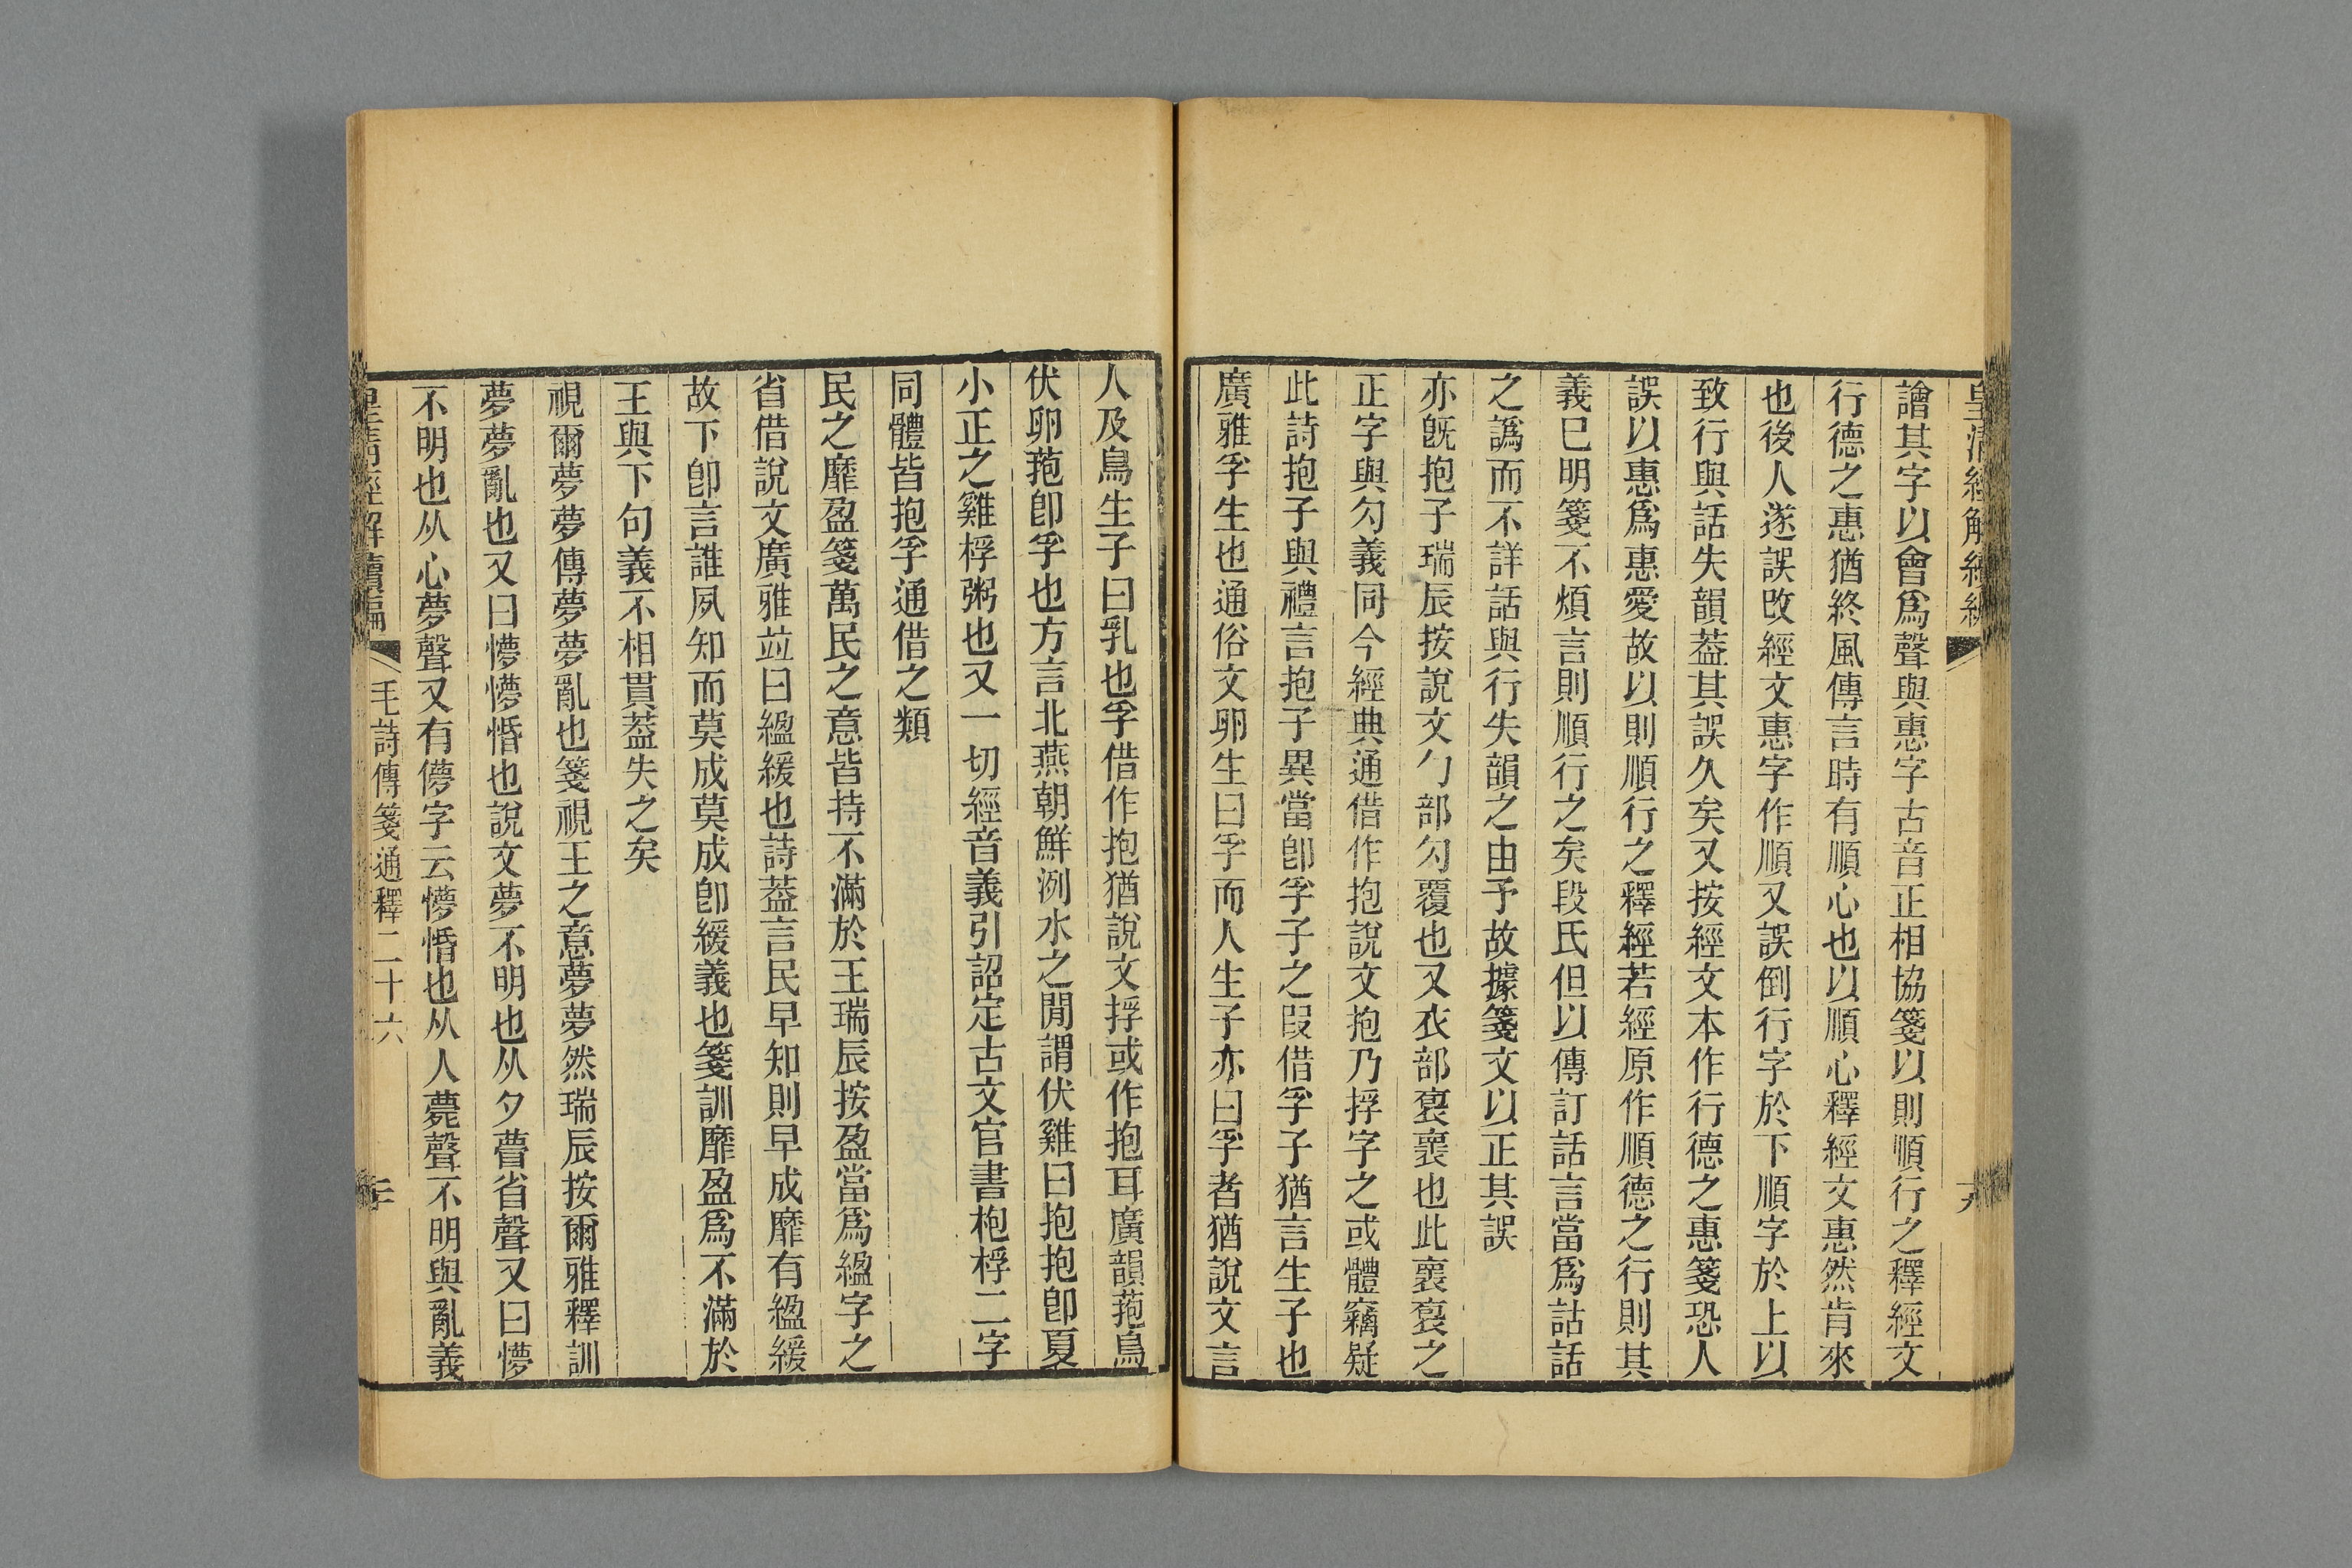 皇清經解續編
譮其字以會爲聲與惠字古音正相協箋以則順行之釋經文
行德之惠猶終風傳言時有順心也以順心釋經文惠然肯來
也後人遂誤改經文惠字作順又誤倒行字於下順字於上以
致行與話失韻葢其誤久矣又按經文本作行德之惠箋恐人
誤以惠爲惠愛故以則順行之釋經若經原作順德之行則其
義已明箋不煩言則順行之矣段氏但以傳訂話言當爲詁話
之譌而不詳話與行失韻之由予故據箋文以正其誤
亦旣抱子瑞辰按說文勹部勽覆也又衣部裒褱也此褱裒之
正字與勽義同今經典通借作抱說文抱乃捊字之或體竊疑
此詩抱子與禮言抱子異當卽孚子之叚借孚子猶言生子也
廣雅孚生也通俗文卵生曰孚而人生子亦曰孚者猶說文言
人及鳥生子曰乳也孚借作抱猶說文捊或作抱耳廣韻菢鳥
伏卵菢卽孚也方言北燕朝鮮洌水之閒謂伏雞曰抱抱卽夏
小正之雞桴粥也又一切經音義引詔定古文官書枹桴二字
同體皆抱孚通借之類
民之靡盈箋萬民之意皆持不滿於王瑞辰按盈當爲縕字之
省借說文廣雅竝曰縕緩也詩葢言民早知則早成靡有縕緩
故下卽言誰夙知而莫成莫成卽緩義也箋訓靡盈爲不滿於
王與下句義不相貫葢失之矣
視爾夢夢傳夢夢亂也箋視王之意夢夢然瑞辰按爾雅釋訓
夢夢亂也又曰懜懜惛也說文夢不明也从夕瞢省聲又曰懜
不明也从心夢聲又有儚字云懜惛也从人薨聲不明與亂義
皇清經解續編 毛詩傳箋通釋二十六